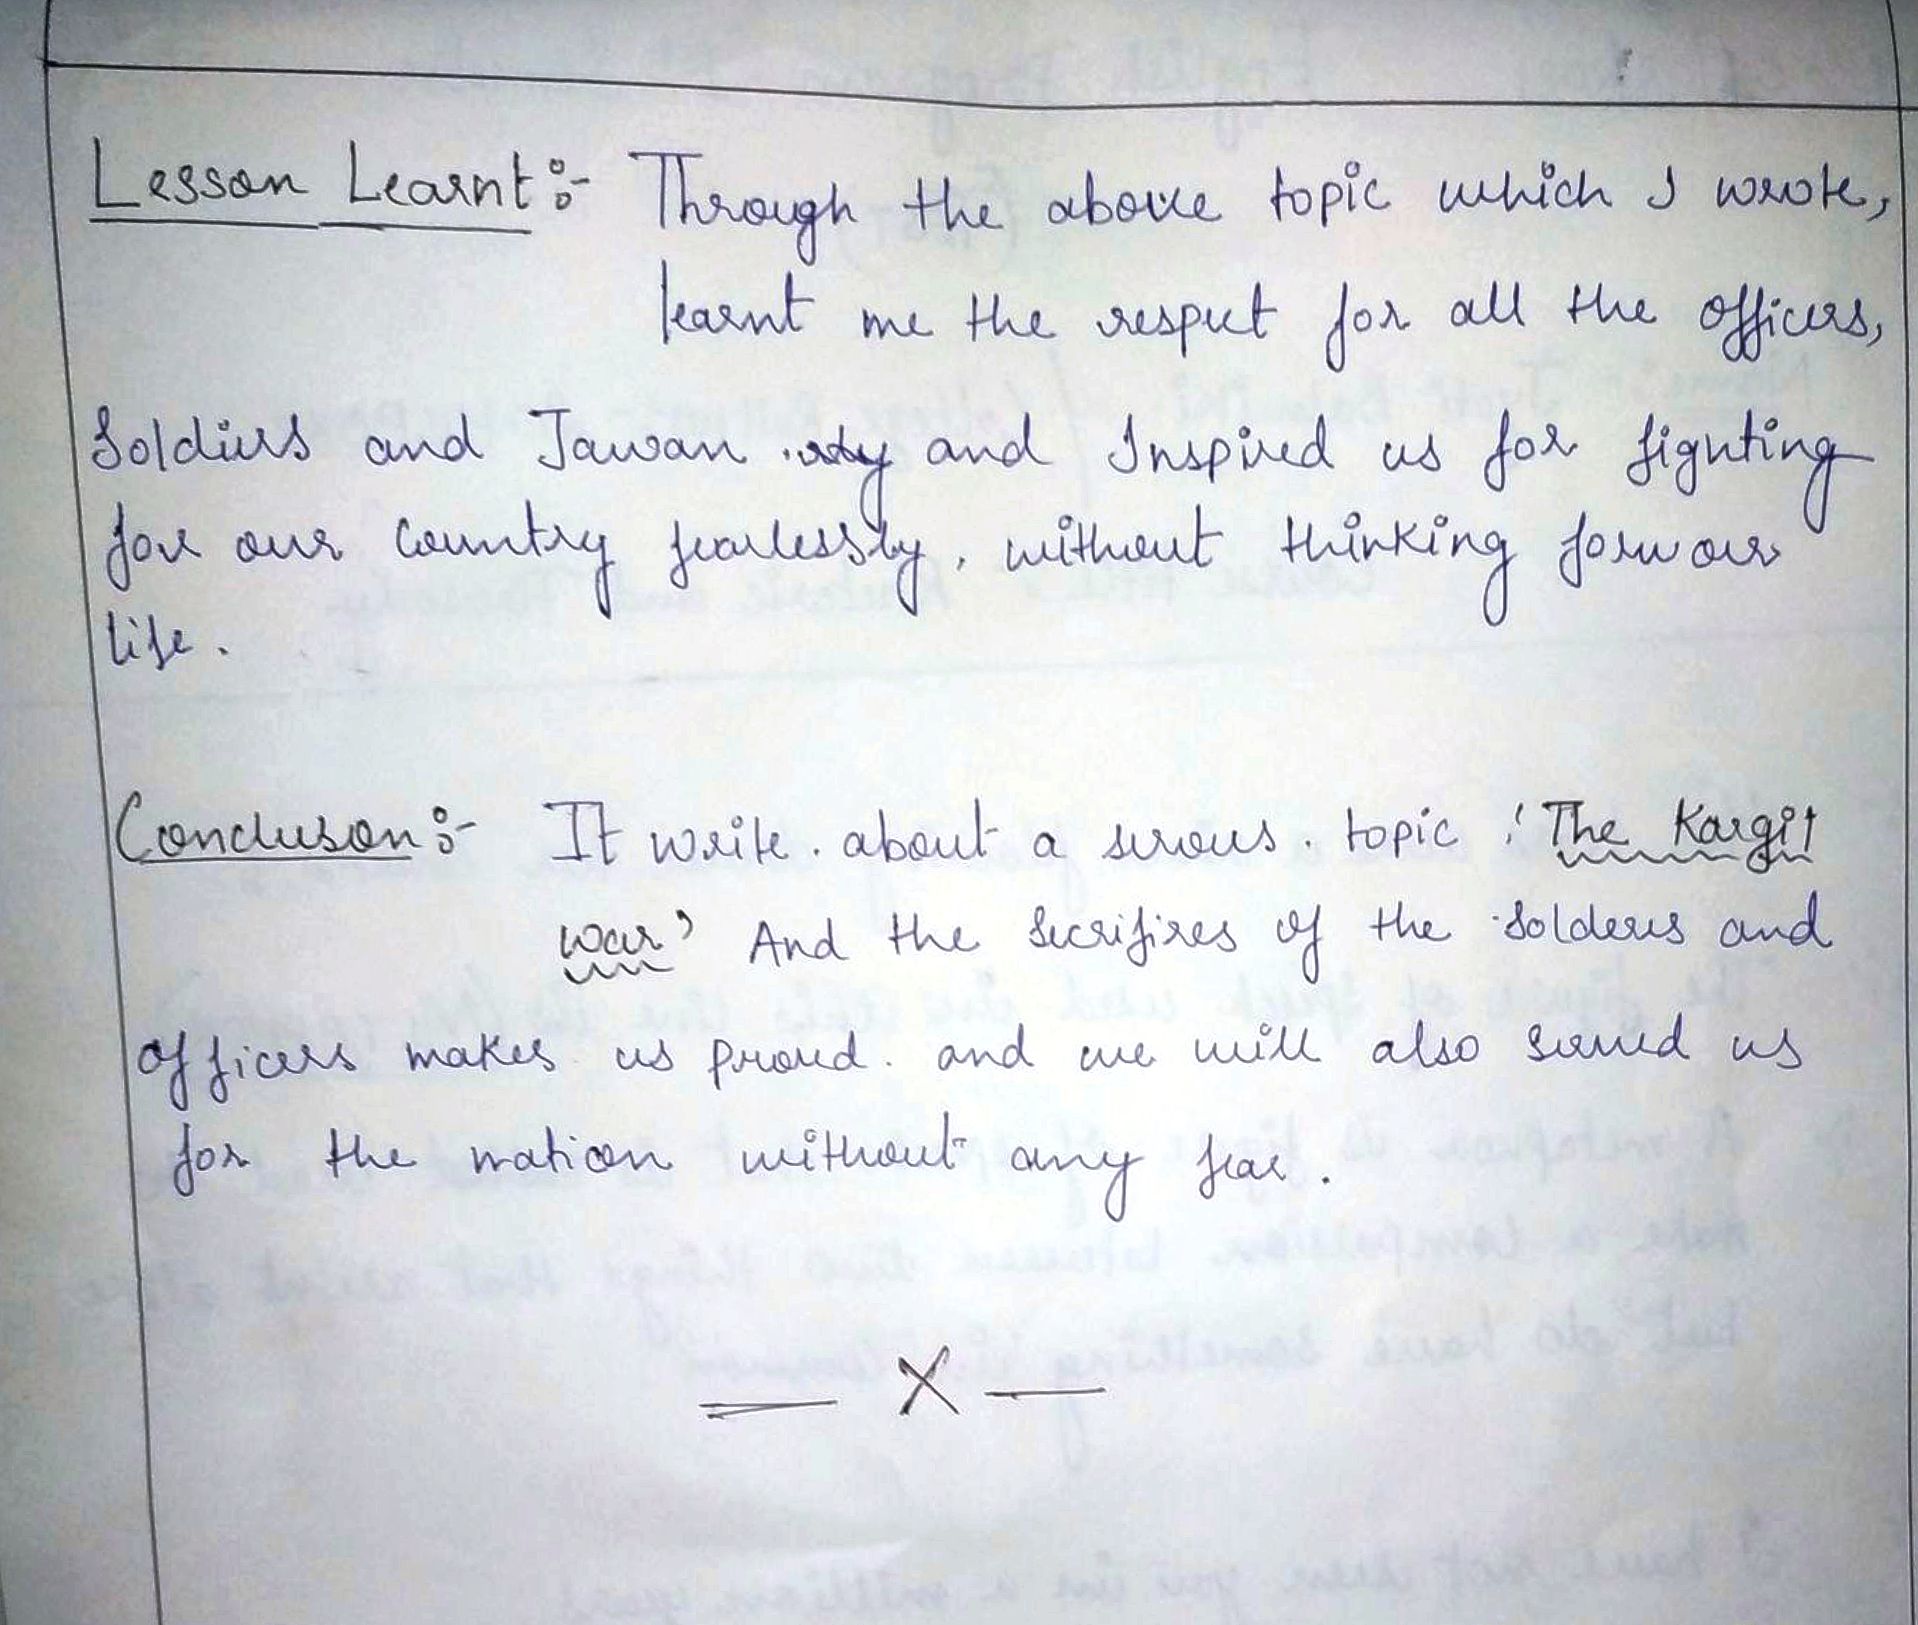 Lesson Learnt :- Through the above topic which I wrote,
learnt me the respect for all the officers,
Soldiers and Jawan and Inspired us for fighting
for our Country fearlessly, without thinking
life.
Conclusion :- It write. about a serous. topic 'The Kargil
war' And the Secrifires of the Solderes and
officers makes us proud. and we will also us
for the nation without any fear.
— X —